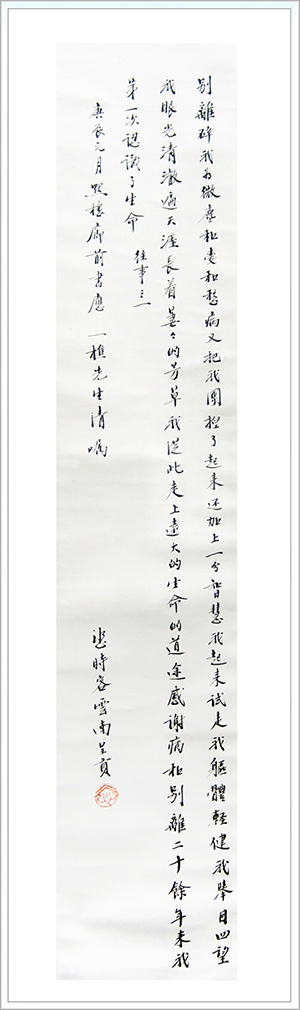 別離碎我為微塵和愛和愁病又把我團捏了起來還加上一分智慧我起來試走我軀體輕健我舉目四望
我眼光清澈遍天涯長着萋々的芳草我從此走上遠大的生命的道途感謝病和別離二十餘年來我
第一次認識了生命
往事之一
庚辰元月默樓廊前書應
一樵先生清囑
時客雲南呈貢